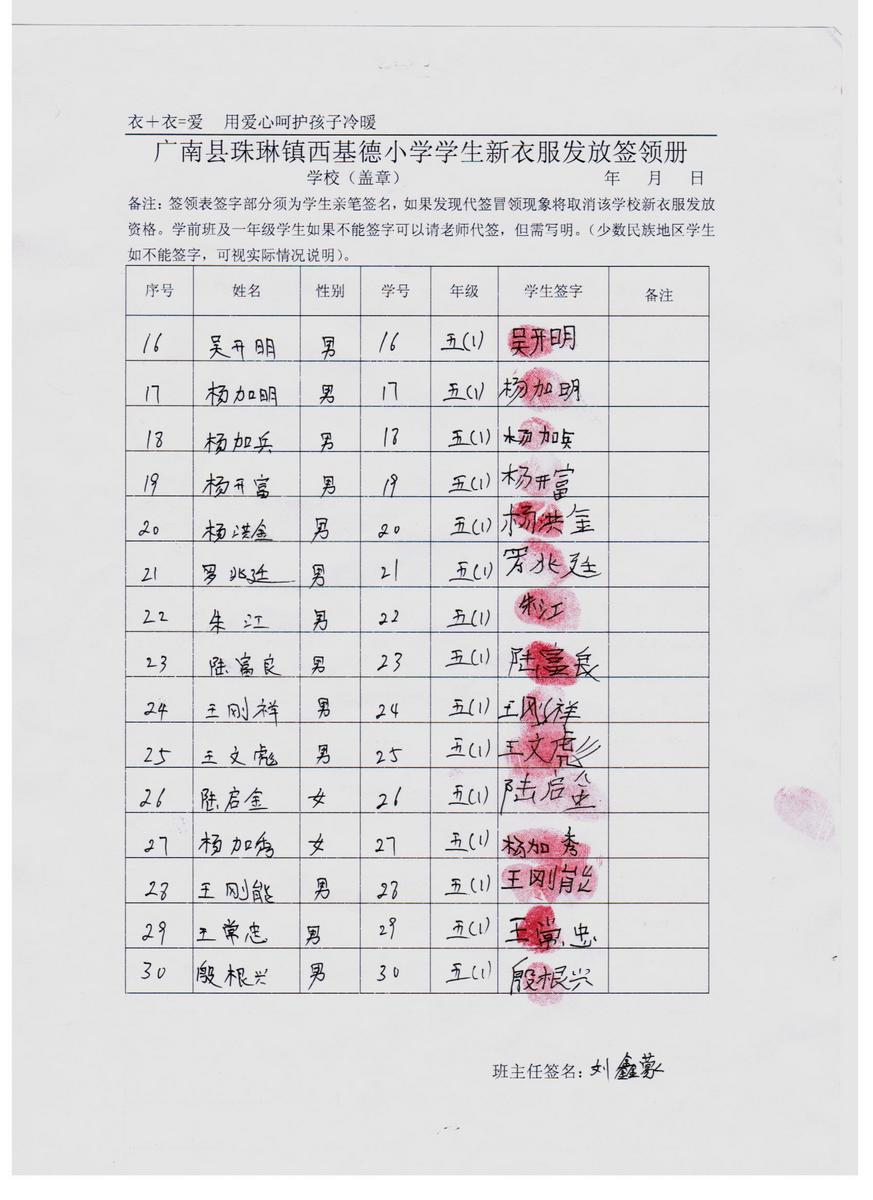 衣＋衣=爱 用爱心呵护孩子冷暖
广南县珠琳镇西基德小学学生新衣服发放签领册
学校（盖章） 年 月 日
备注：签领表签字部分须为学生亲笔签名，如果发现代签冒领现象将取消该学校新衣服发放
资格。学前班及一年级学生如果不能签字可以请老师代签，但需写明。（少数民族地区学生
如不能签字，可视实际情况说明）。
序号 姓名 性别 学号 年级 学生签字 备注
16 吴开明 男 16 五(1) 吴开明
17 杨加明 男 17 五(1) 杨加明
18 杨加兵 男 18 五(1) 杨加兵
19 杨开富 男 19 五(1) 杨开富
20 杨洪金 男 20 五(1) 杨洪金
21 罗兆廷 男 21 五(1) 罗兆廷
22 朱江 男 22 五(1) 朱江
23 陆富良 男 23 五(1) 陆富良
24 王刚祥 男 24 五(1) 王刚祥
25 王文彪 男 25 五(1) 王文彪
26 陆启金 女 26 五(1) 陆启金
27 杨加秀 女 27 五(1) 杨加秀
28 王刚能 男 28 五(1) 王刚能
29 王常忠 男 29 五(1) 王常忠
30 殷根兴 男 30 五(1) 殷根兴
班主任签名：刘鑫蒙